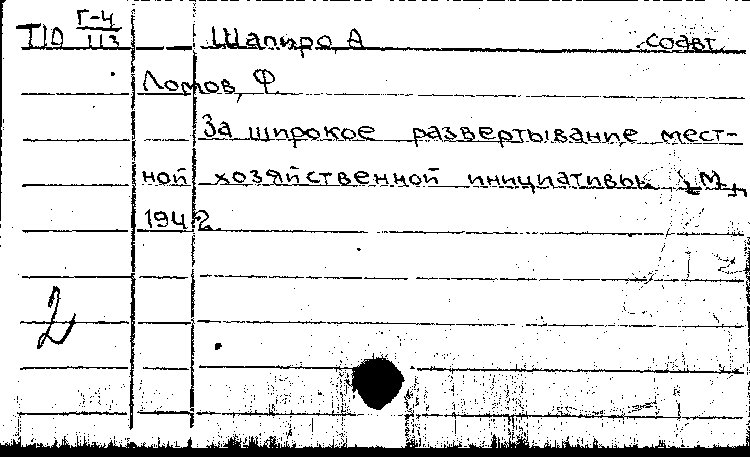 Т10 Г-4/113 Шапиро, А соавт.
Ломов, Ф
За широкое развертывание мест-
ной хозяйственной инициативы М.,
1942.
2